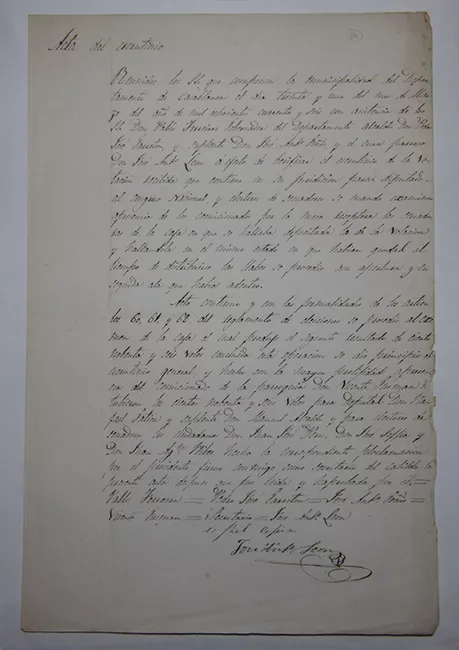 Acta del escrutinio
Reunidos los SS. que componen la municipalidad del Depar-
tamento de Casablanca el dia treinta y uno del mes de Mar-
zo del año de mil ochocientos cuarenta y seis con asistencia de los
SS. Don Pablo Gobernador del Departamento alcalde Don Pedro
José y suplente Don José Ant.o y el cura párroco
Don José Ant.o Leon a efecto de verificar el escrutinio de la vo-
tacion recibida que contiene en su jurisdiccion para diputado
al congreso Nacional y electores de senadores se mandó examinar
a presencia de los comicionados por la mesa receptora las cerradu-
ras de la caja en que se hallaba depositada la de la votacion
y hallandola en el mismo estado en que habian quedado al
tiempo de distribuirse las llaves se procedió a su apertura y en
seguida a la que habia adentro.
Acto continuo y con las formalidades de los artícu-
los 60, 61 y 62 del reglamento de elecciones se procedió al exa-
men de la caja el cual produjo el siguiente resultado de ciento
noventa y seis votos concluida esta operacion se dió principio al
escrutinio general y hecho con la mayor prolijidad a presen-
cia del comicionado de la parroquia Don Vicente Guzman
ciento noventa y seis votos para Diputado Don Ra-
fael y suplente Don Manuel y para electores de
senadores los ciudadanos Don Juan José Don José y
Don Juan Ag.n hecha la correspondiente proclamacion
por el presidente firmó conmigo como secretario del cabildo la
presente acta despues que fue leida y por el =
Pablo = Pedro José = José Ant.o =
Vicente Guzman = Secretario = José Ant.o Leon
es fiel copia
José Ant.o Leon